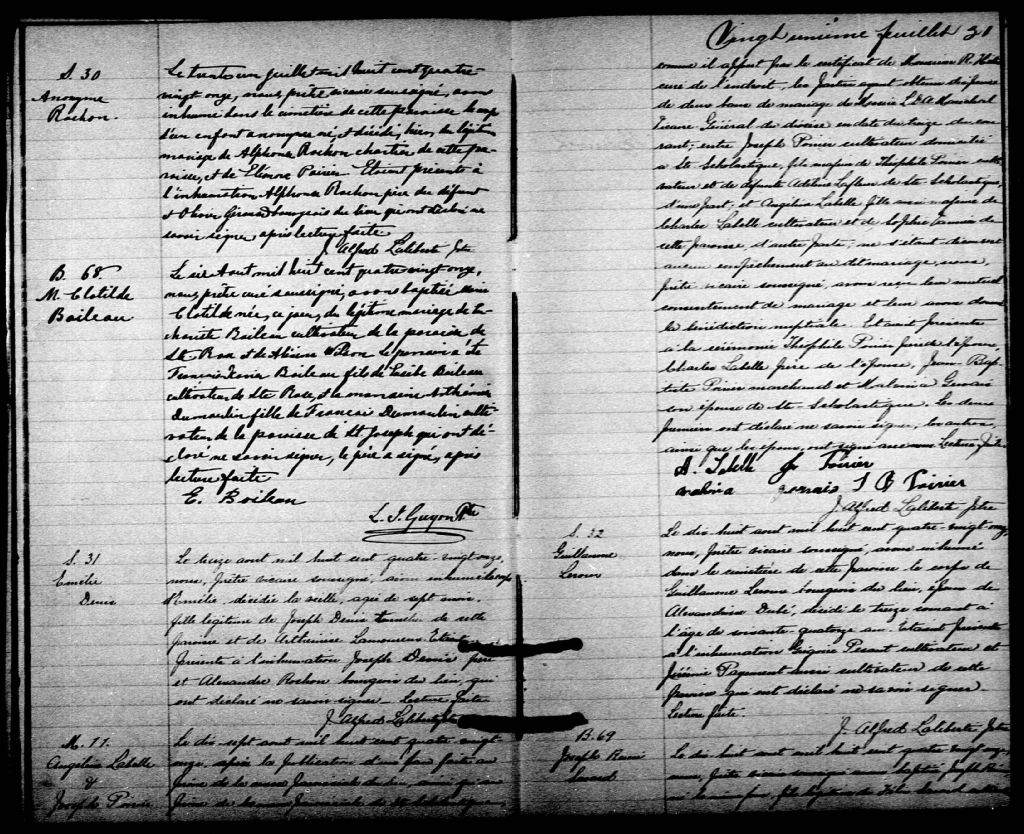 S. 30
Anonyme
Rochon.
Le trente un juillet mil huit cent quatre-
vingt onze, nous prêtre vicaire soussigné, avons
inhumé dans le cimetière de cette paroisse le corps
d'un enfant anonyme né, et décédé, hier, du légitime
mariage d'Alphonse Rochon charretier de cette pa-
roisse, et de Poirier. Étaient présents à
l'inhumation Alphonse Rochon père du défunt
et Olivier Giroux bourgeois du lieu qui ont déclaré ne
savoir signer, après lecture faite
J. Alfred Laliberté Ptre
B. 68
M. Clotilde
Boileau
Le six Aout mil huit cent quatre vingt onze,
nous prêtre curé soussigné, avons baptisé Marie
Clotilde née, ce jour, du légitime mariage de
Boileau cultivateur de la paroisse de
Ste Rose et de Wilson. Le parrain a été
François Xavier Boileau fils de Boileau
cultivateur de Ste Rose, et la marraine
Dumoulin fille de Francois Dumoulin culti-
vateur de la paroisse de St Joseph qui ont dé-
claré ne savoir signer, le père a signé, après
lecture faite
E. Boileau
L. J. Guyon Ptre
S. 31
Emélie
Denis
Le treize aout mil huit cent quatre-vingt onze,
nous, prêtre vicaire soussigné, avons inhumé le corps
d'Emélie, décédée la veille, agée de sept mois,
fille légitime de Joseph Denis de cette
paroisse et de Lamoureux. Etaient
présents à l'inhumation Joseph Denis père
et Alexandre Rochon bourgeois du lieu, qui
ont déclaré ne savoir signer. Lecture faite
J. Alfred Laliberté Ptre
M. 11.
Angélina Labelle
&
Joseph Poirier
Le dix sept aout mil huit cent quatre vingt
onze, après la publication d'un ban faite au
prône de la messe paroissiale du lieu, ainsi qu'au
prône de la messe paroissiale de Ste Scholastique
Vingt unième feuillet 21
comme il appert par le certificat de Monsieur R.
curé de l'endroit, les parties ayant obtenu dispense
de deux bans de mariage de Messire L. D. A. Maréchal
Vicaire Général du diocèse en date du treize du cou-
rant; entre Joseph Poirier cultivateur domicilié
à Ste Scholastique, fils majeur de Théophile Poirier culti-
vateur et de défunte Adéline Lafleur de Ste Scholastique,
d'une part, et Angélina Labelle fille majeure de
Charles Labelle cultivateur et de Sophie de
cette paroisse, d'autre part; ne s'étant découvert
aucun empêchement au dit mariage, nous,
prêtre vicaire soussigné, avons reçu leur mutuel
consentement de mariage et leur avons donné
la bénédiction nuptiale. Etaient présents
à la cérémonie Théophile Poirier père de l'époux,
Charles Labelle père de l'épouse, Jean Bap-
tiste Poirier marchand et Malvina Gervais
son épouse de Ste Scholastique. Les deux
premiers ont déclaré ne savoir signer, les autres,
ainsi que les époux, ont signé avec nous. Lecture faite
A. Labelle Jos Poirier
malvina gervais J B Poirier
J. Alfred Laliberté Ptre
S. 32
Guillaume
Leroux
Le dix huit aout mil huit cent quatre-vingt onze,
nous, prêtre vicaire soussigné, avons inhumé
dans le cimetière de cette paroisse le corps de
Guillaume Leroux bourgeois du lieu, époux de
Alexandrine Dubé, décédé le treize courant à
l'âge de soixante-quatorze ans. Etaient présents
à l'inhumation Grégoire cultivateur et
Jérémie Payement aussi cultivateur de cette
paroisse qui ont déclaré ne savoir signer.
Lecture faite.
J. Alfred Laliberté Ptre
B. 69
Joseph
Le dix huit aout mil huit cent quatre vingt onze,
nous, prêtre vicaire soussigné avons baptisé Joseph